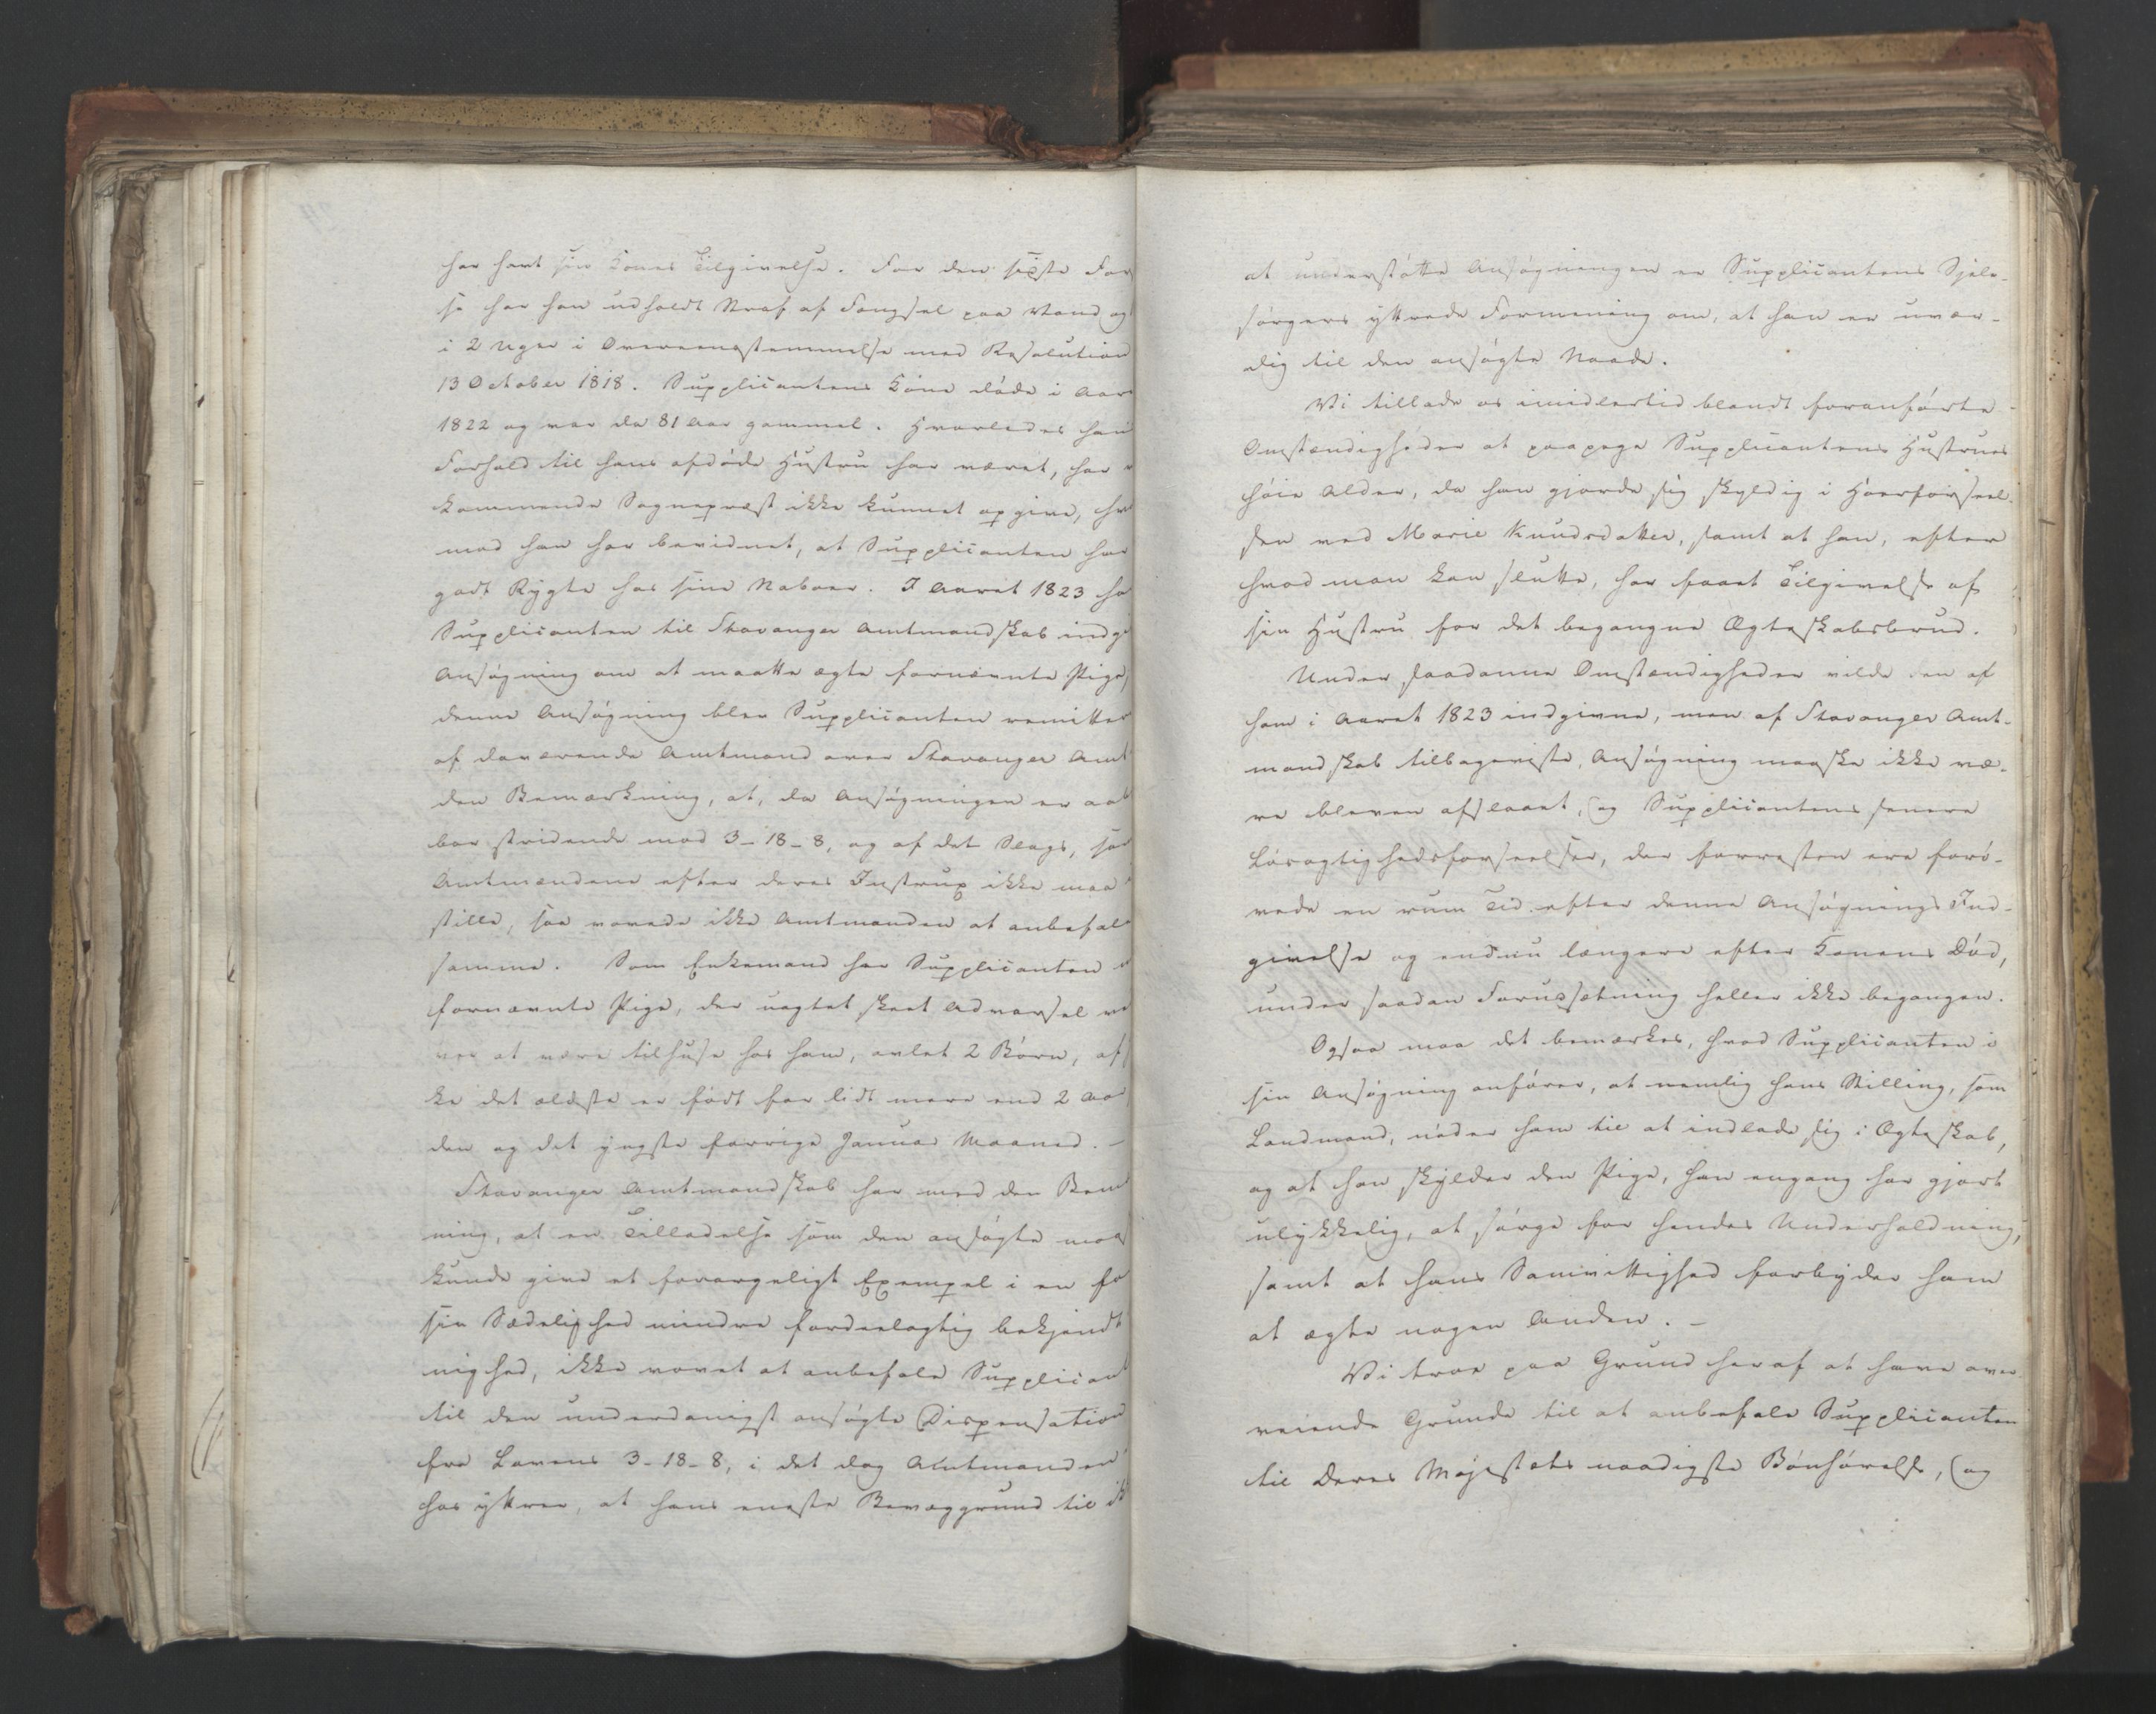 har havt sin Kones Tilgivelse. For den sidste For
se har han udholdt Straf af Fængsel paa Vand og
i 2 Uger i Overeensstemmelse med Resolution
13 October 1818. Supplicantens Kone døde i Aar
1822 og var da 81 Aar gammel. Hvorledes han
Forhold til hans afdøde Hustru har været, har
kommende Sognepræst ikke kunnet opgive, hv
mod han har bevidnet, at Supplicanten har
godt Rygte hos sine Naboer. I Aaret 1823 ha
Supplicanten til Stavanger Amtmandskab indg
Ansøgning om at maatte ægte fornævnte Pige,
denne Ansøgning blev Supplicanten remitter
af daværende Amtmand over Stavanger Amt
den Bemærkning, at, da Ansøgningen er aab
bar stridende mod 3-18-8, og af det Slags, som
Amtmændene efter deres Instrux ikke maa
stille, saa vovede ikke Amtmanden at anbefale
samme. Som Enkemand har Supplicanten
fornævnte Pige, der uagtet skeet Advarsel ve
ver at være tilhuse hos ham, avlet 2 Børn, af
ke det ældste er født for lidt mere end 2 Aar
den og det yngste forrige Januar Maaned. –
Stavanger Amtmandskab har med den Bem
ning, at en Tilladelse som den ansøgte maa
kunde give et forargeligt Exempel i en fo
sin Sædelighed mindre fordeelagtig bekjendt
nighed, ikke vovet at anbefale Supplicant
til den underdanigst ansøgte Dispensation
fra Lovens 3-18-8, i det dog Amtmanden
hos yttrer, at hans eneste Bevæggrund til ik
at understøtte Ansøgningen er Supplicantens Sjele-
sørgers yttrede Formening om, at han er uvær-
dig til den ansøgte Naade.
Vi tillade os imidlertid blandt foranførte
Omstændigheder at paapege Supplicantens Hustrues
høie Alder, da han gjorde sig skyldig i Hoerforseel-
sen med Marie Knudsdatter, samt at han, efter
hvad man kan slutte, har faaet Tilgivelse af
sin Hustru for det begangne Ægteskabsbrud.
Under saadanne Omstændigheder vilde den af
ham i Aaret 1823 indgivne, men af Stavanger Amt-
mandskab tilbageviste, Ansøgning maaske ikke væ-
re bleven afslaaet, og Supplicantens senere
Løsagtighedsforseelser, der forresten ere forø-
vede en rum Tid efter denne Ansøgnings Ind-
givelse og endnu længere efter Konens Død,
under saadan Forudsætning heller ikke begangen.
Ogsaa maa det bemærkes, hvad Supplicanten i
sin Ansøgning anfører, at nemlig hans Stilling, som
Landmand, nøder ham til at indlade sig i Ægteskab,
og at han skylder den Pige, han engang har gjort
ulykkelig, at sørge for hendes Underholdning,
samt at hans Samvittighed forbyder ham
at ægte nogen Anden. –
Vi troe paa Grund heraf at have over-
veiende Grunde til at anbefale Supplicanten
til Deres Majestæts naadigste Bønhørelse, og